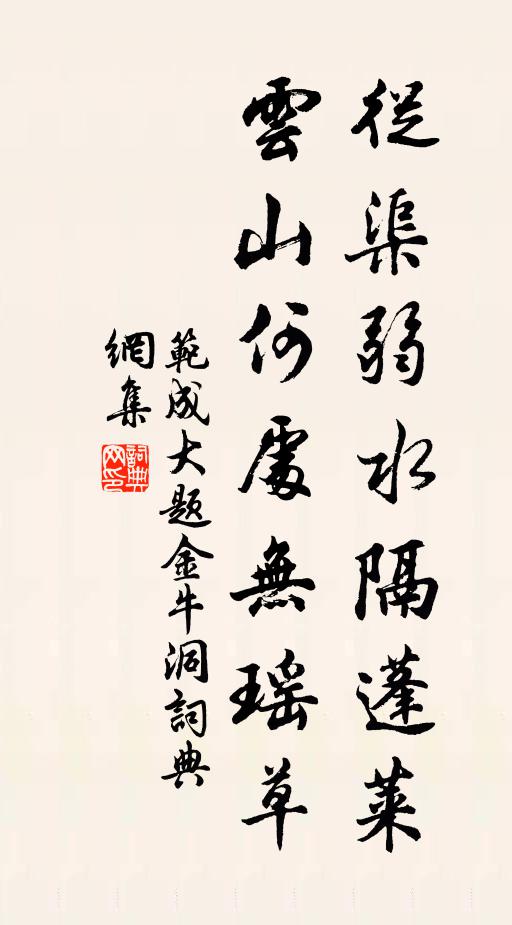 從渠弱水隔蓬萊
雲山何處無瑶草
範成大题金牛洞詞典
網集
詞典
网印